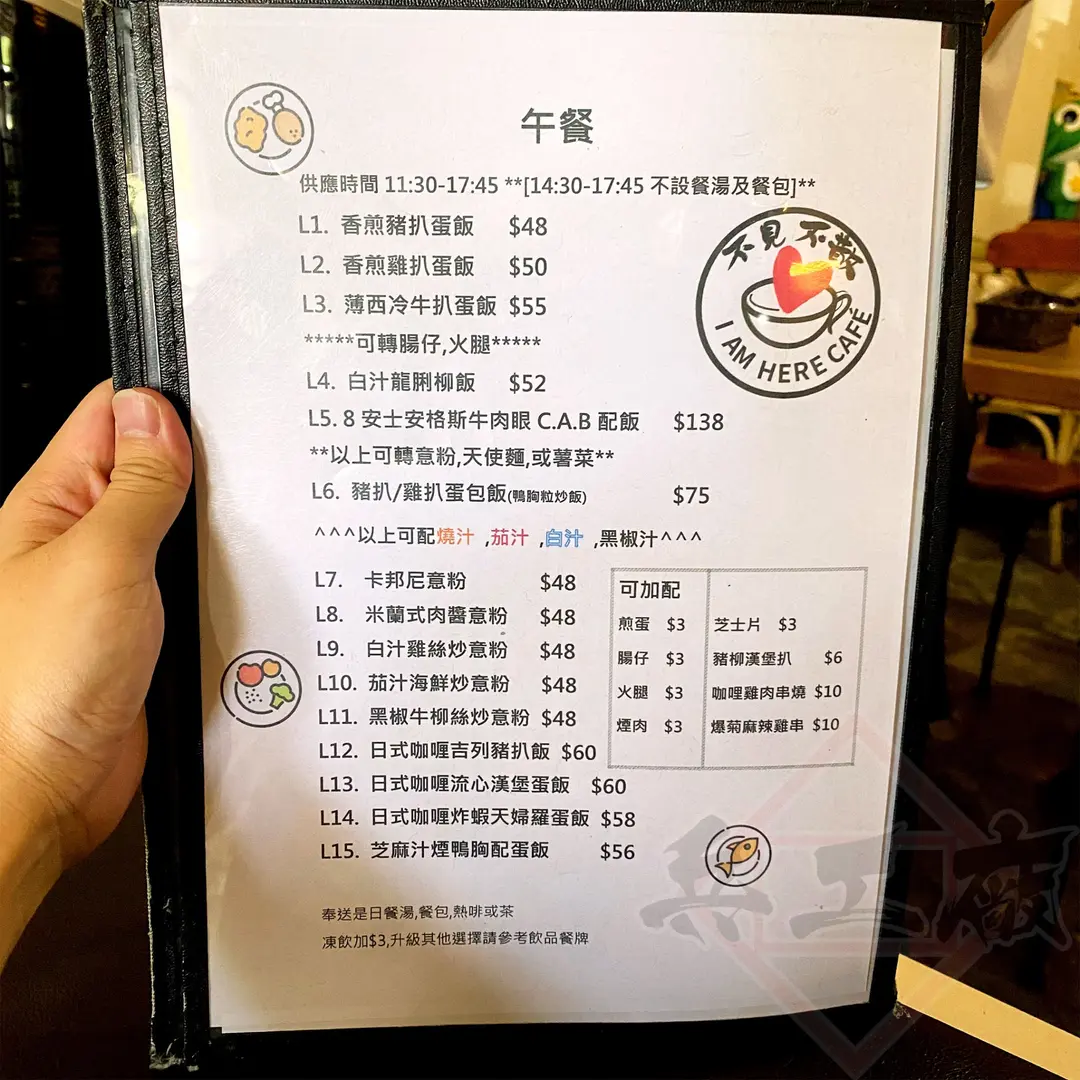 午餐
供應時間 11:30-17:45 **[14:30-17:45 不設餐湯及餐包]**
L1. 香煎豬扒蛋飯 $48
L2. 香煎雞扒蛋飯 $50
L3. 薄西冷牛扒蛋飯 $55
*****可轉腸仔,火腿*****
L4. 白汁龍脷柳飯 $52
L5. 8 安士安格斯牛肉眼 C.A.B 配飯 $138
**以上可轉意粉,天使麵,或薯菜**
L6. 豬扒/雞扒蛋包飯(鴨胸粒炒飯) $75
^^^以上可配燒汁 ,茄汁 ,白汁 ,黑椒汁^^^
L7. 卡邦尼意粉 $48
L8. 米蘭式肉醬意粉 $48
L9. 白汁雞絲炒意粉 $48
L10. 茄汁海鮮炒意粉 $48
L11. 黑椒牛柳絲炒意粉 $48
L12. 日式咖喱吉列豬扒飯 $60
L13. 日式咖喱流心漢堡蛋飯 $60
L14. 日式咖喱炸蝦天婦羅蛋飯 $58
L15. 芝麻汁煙鴨胸配蛋飯 $56
可加配
煎蛋 $3 芝士片 $3
腸仔 $3 豬柳漢堡扒 $6
火腿 $3 咖喱雞肉串燒 $10
煙肉 $3 爆菊麻辣雞串 $10
奉送是日餐湯,餐包,熱啡或茶
凍飲加$3,升級其他選擇請參考飲品餐牌
不見不散
I AM HERE CAFÉ
兵工廠